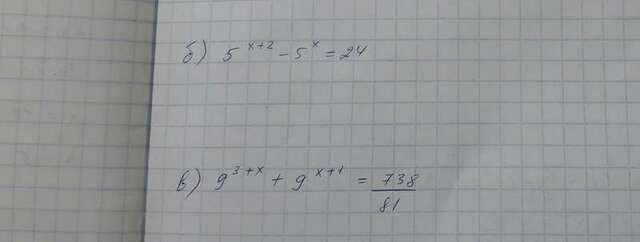 б) 5^{x+2} - 5^x = 24
в) 9^{3+x} + 9^{x+1} = \frac{738}{81}